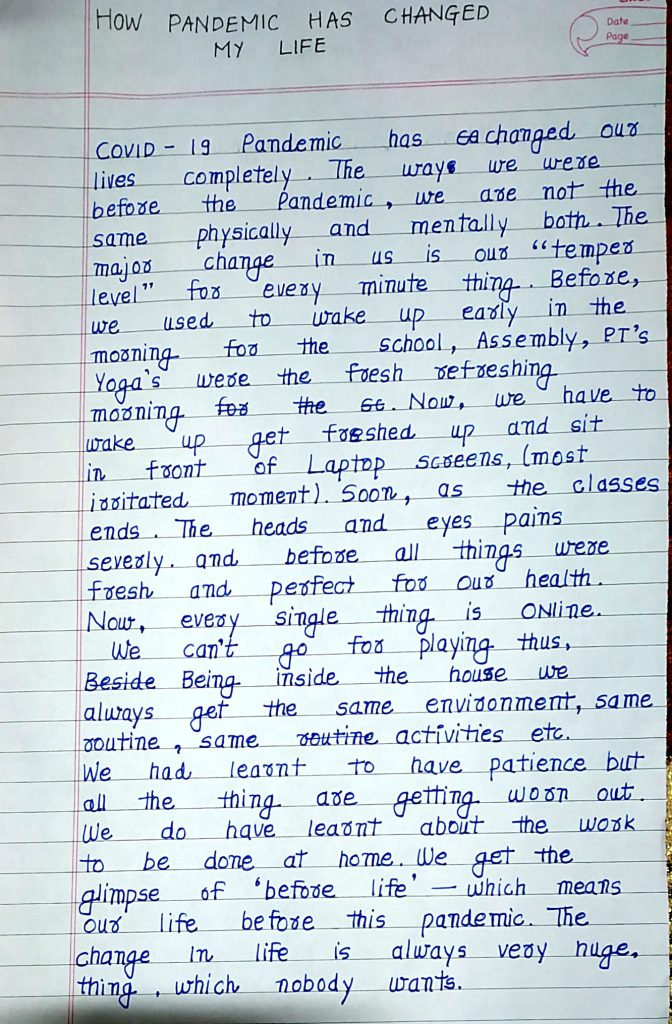 HOW PANDEMIC HAS CHANGED
MY LIFE
Date
Page
COVID - 19 Pandemic has ea changed our
lives completely. The ways we were
before the Pandemic, we are not the
same physically and mentally both. The
major change in us is our "temper
level" for every minute thing. Before,
we used to wake up early in the
morning for the school, Assembly, PT's
Yoga's were the fresh refreshing
morning for the sc. Now, we have to
wake up get freshed up and sit
in front of Laptop screens, (most
irritated moment). Soon, as the classes
ends. The heads and eyes pains
severly. and before all things were
fresh and perfect for our health.
Now, every single thing is ONline.
We can't go for playing thus,
Beside Being inside the house we
always get the same environment, same
routine, same routine activities etc.
We had learnt to have patience but
all the thing are getting worn out.
We do have learnt about the work
to be done at home. We get the
glimpse of 'before life' — which means
our life before this pandemic. The
change in life is always very huge.
thing, which nobody wants.